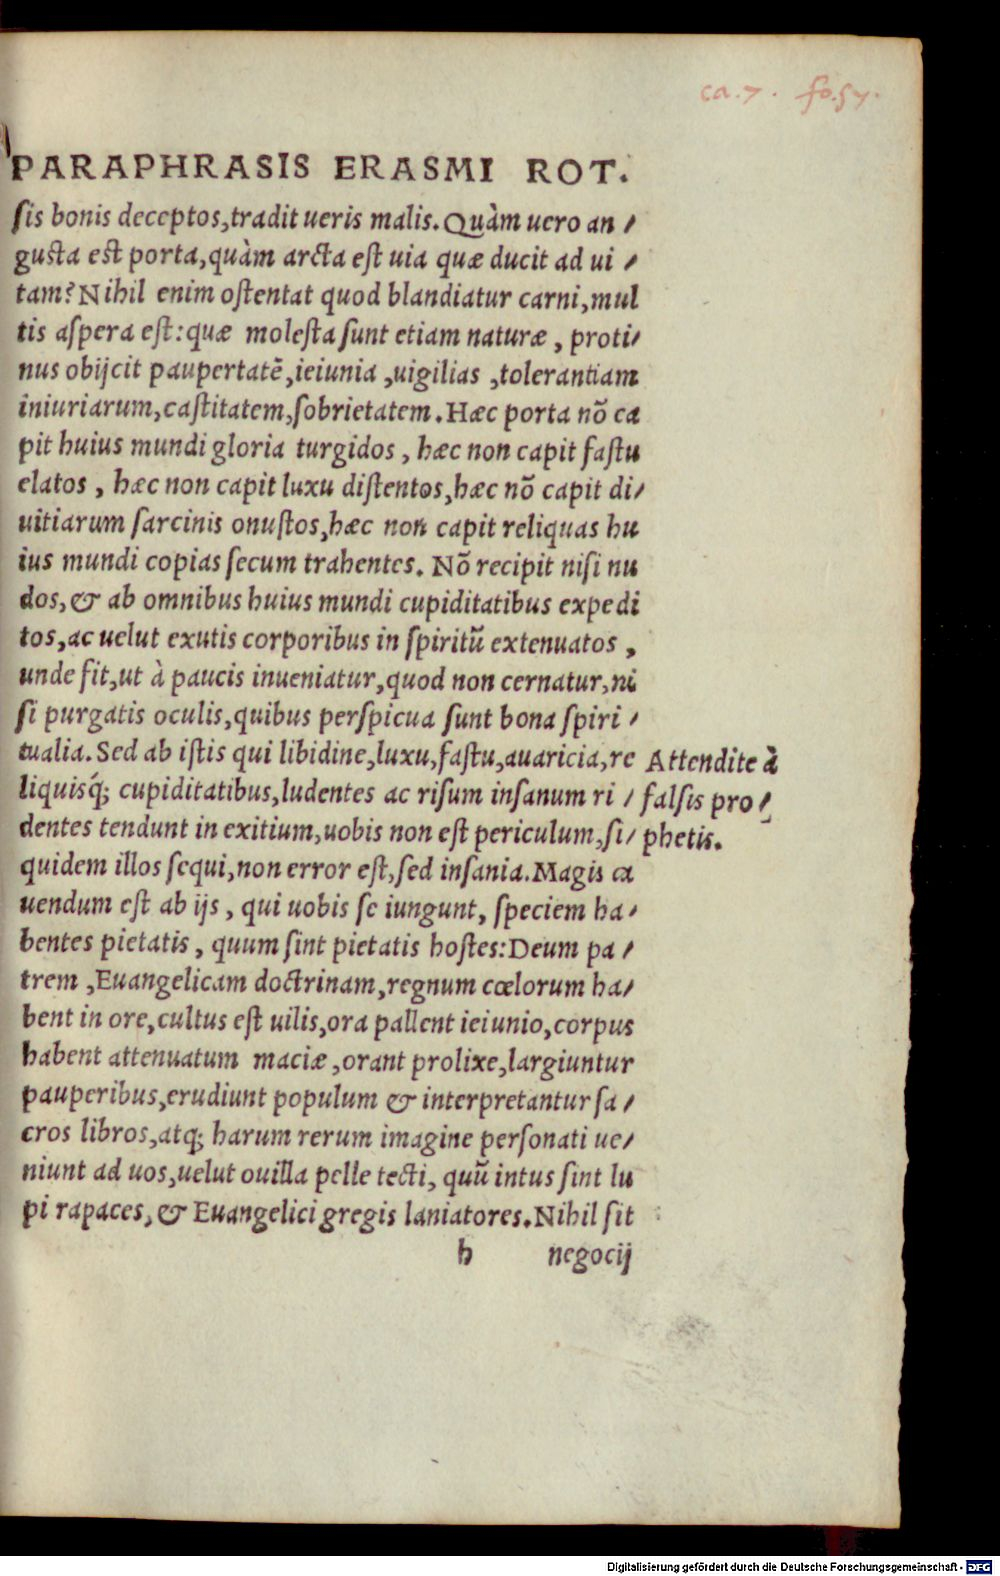 ca.7. fo.57.
PARAPHRASIS ERASMI ROT.
sis bonis deceptos,tradit ueris malis.Quàm uero an⸗
gusta est porta,quàm arcta est uia quæ ducit ad ui⸗
tam? Nihil enim ostentat quod blandiatur carni,mul
tis aspera est:quæ molesta sunt etiam naturæ, proti⸗
nus obijcit paupertatē,ieiunia,uigilias,tolerantiam
iniuriarum,castitatem,sobrietatem.Hæc porta nō ca
pit huius mundi gloria turgidos, hæc non capit fastu
elatos, hæc non capit luxu distentos,hæc nō capit di⸗
uitiarum sarcinis onustos,hæc non capit reliquas hu
ius mundi copias secum trahentes. Nō recipit nisi nu
dos,& ab omnibus huius mundi cupiditatibus expedi
tos,ac uelut exutis corporibus in spiritū extenuatos,
unde fit,ut à paucis inueniatur,quod non cernatur,ni
si purgatis oculis,quibus perspicua sunt bona spiri⸗
tualia.Sed ab istis qui libidine,luxu,fastu,auaricia,re
liquisq́; cupiditatibus,ludentes ac risum insanum ri⸗
dentes tendunt in exitium,uobis non est periculum,si⸗
quidem illos sequi,non error est,sed insania.Magis ca
uendum est ab ijs, qui uobis se iungunt, speciem ha⸗
bentes pietatis, quum sint pietatis hostes:Deum pa⸗
trem,Euangelicam doctrinam,regnum cœlorum ha⸗
bent in ore,cultus est uilis,ora pallent ieiunio,corpus
habent attenuatum maciæ,orant prolixe,largiuntur
pauperibus,erudiunt populum & interpretantur sa⸗
cros libros,atq; harum rerum imagine personati ue⸗
niunt ad uos,uelut ouilla pelle tecti, quū intus sint lu
pi rapaces,& Euangelici gregis laniatores.Nihil sit
h negocij
Attendite à
falsis pro⸗
phetis.
Digitalisierung gefördert durch die Deutsche Forschungsgemeinschaft - DFG